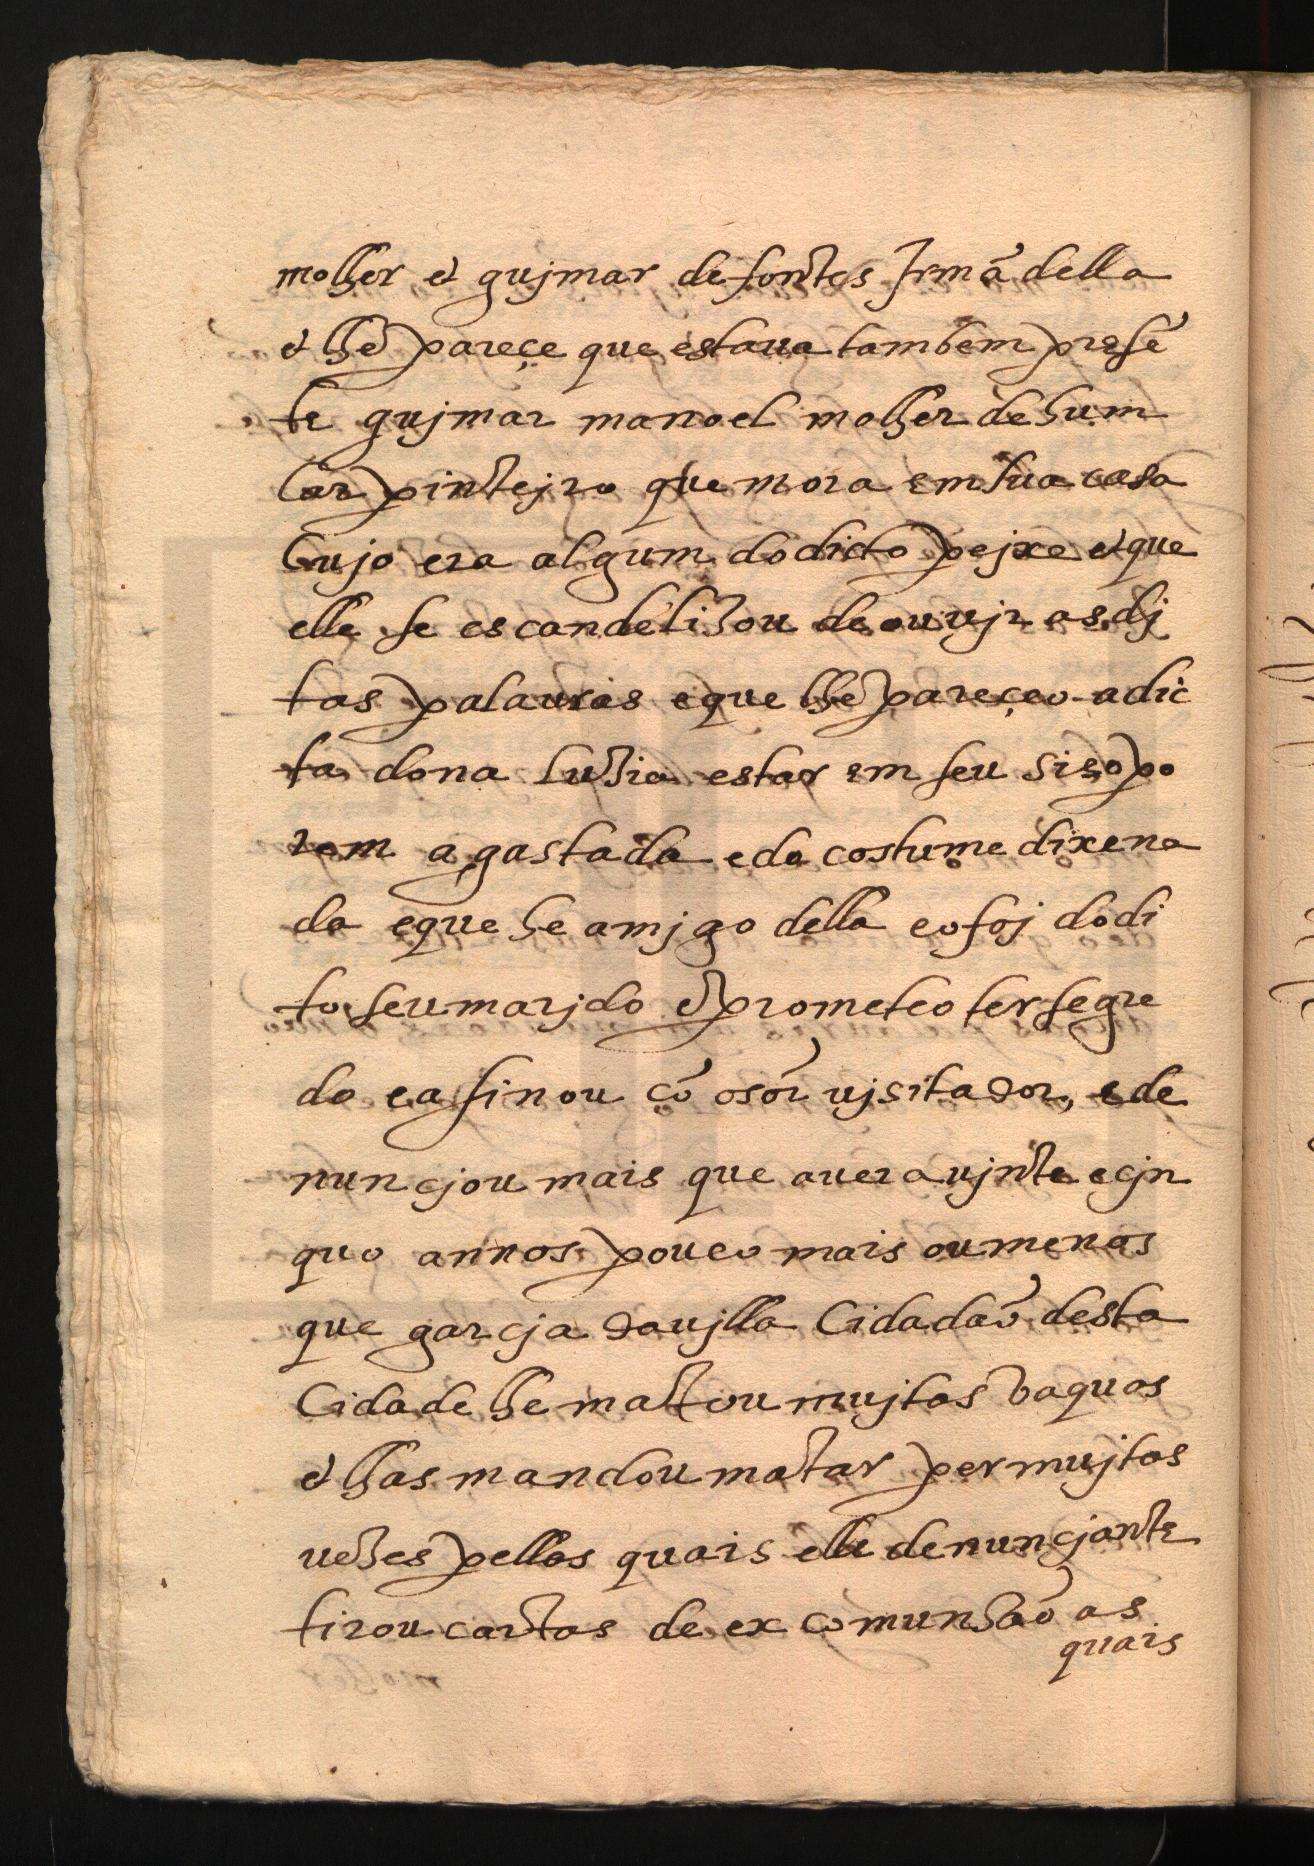 molher e gujmar de fontes Irmã della
e lhe pareçe que estaua tambem presẽ
te gujmar manoel molher de hum
Carpintejro que mora em sua casa
Cujo era algum do dicto pejxe e que
elle se escandelizou de ouujr as dj
tas palauras e que lhe pareçeo a dic
ta dona Luzia estar em seu siso po
rem agastada e do costume dixe na
da e que he amjgo della e o foj do di
to seu marjdo e prometeo ter segre
do e asinou cõ o sõr ujsitador, e de
nuncjou mais que auera ujnte e cjn
quo annos pouco mais ou menos
que garcja daujlla Cidadaõ desta
Cidade lhe mattou mujtas vaquas
e lhas mandou matar per mujtas
uezes pellas quais elle denuncjante
tirou cartas de excomunzaõ as
quais